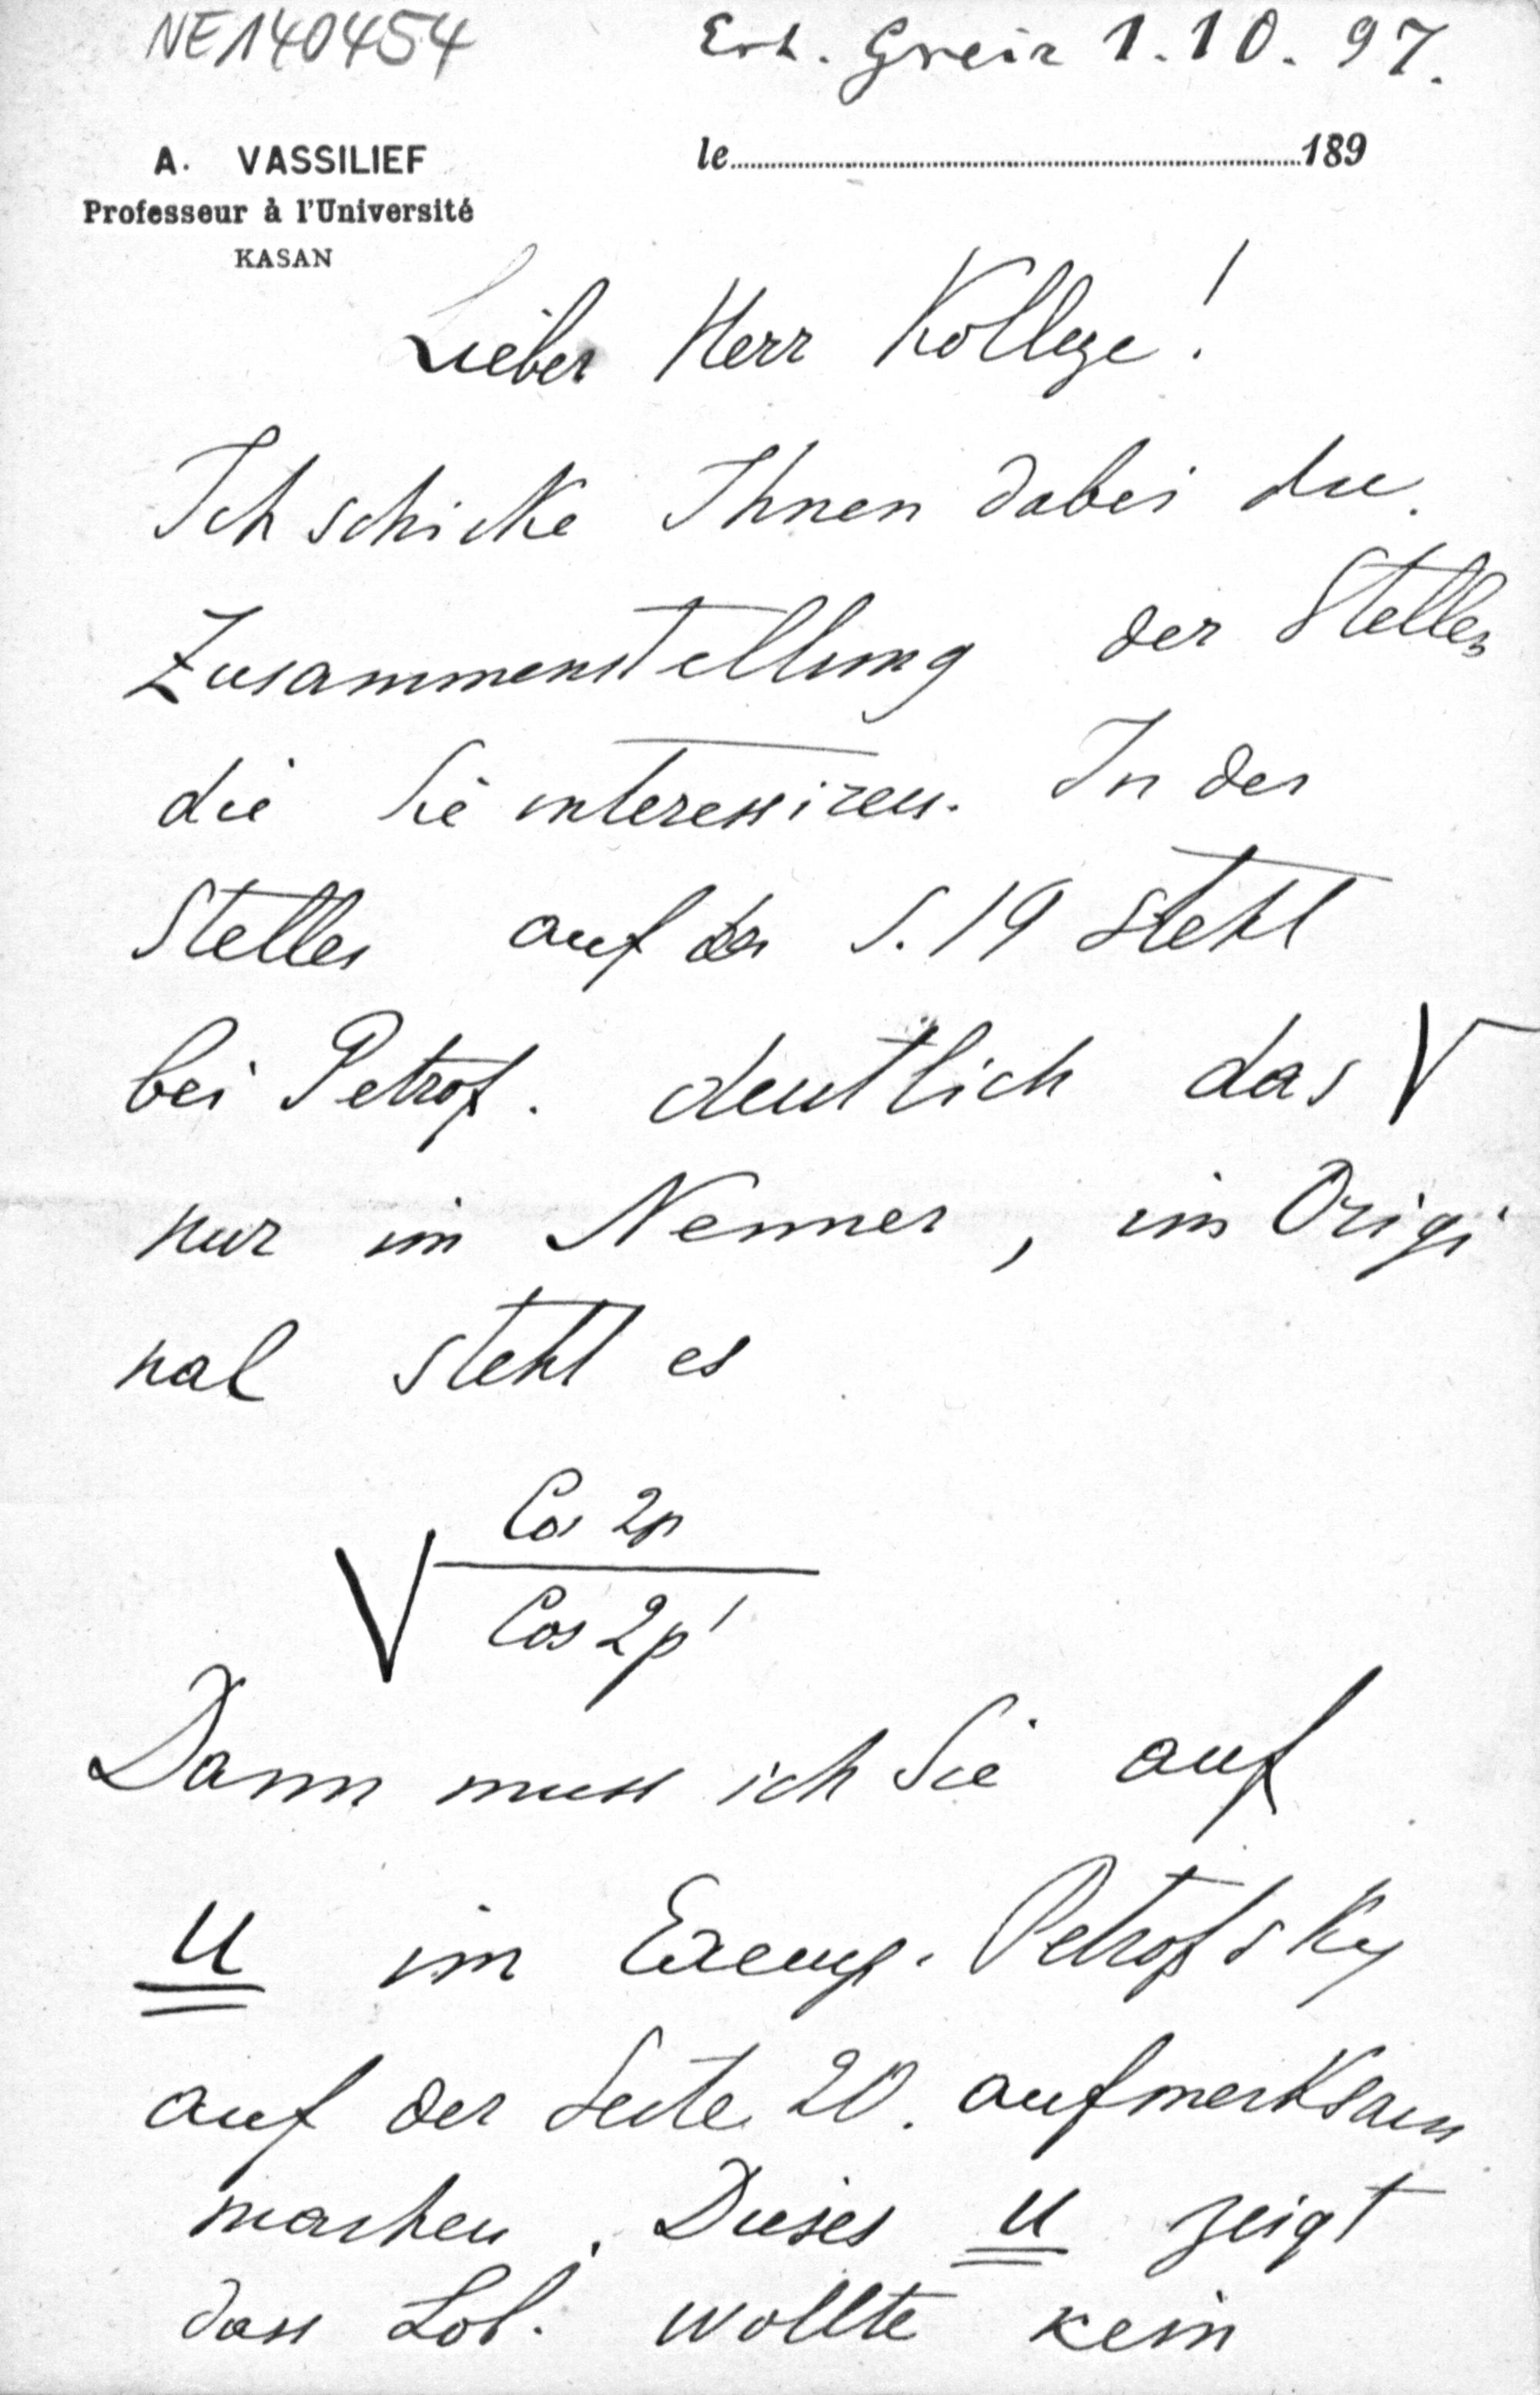 NE140454
Erh. Greiz 1.10.97.
A. VASSILIEF
le 189
Professeur à l'Université
KASAN
Lieber Herr Kollege!
Ich schicke Ihnen dabei die
Zusammenstellung der Stellen
die Sie interessiren. In der
Stelle auf der S. 19 steht
bei Petrof. deutlich das √
nur im Nenner, im Origi
nal steht es
√ Cos 2p
Cos 2p'
Dann muss ich Sie auf
u im Exemp. Petrofsky
auf der Seite 20. aufmerksam
machen. Dieses u zeigt
dass Lob. wollte kein